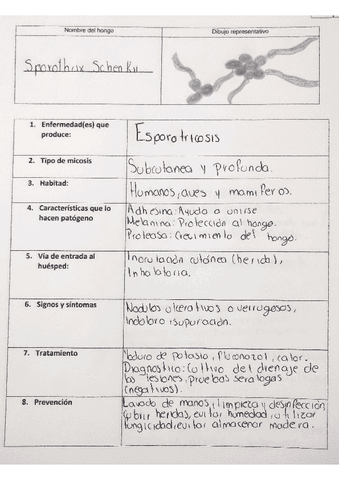 Nombre del hongo
Dibujo representativo
Sporothrix Schenkii
1. Enfermedad(es) que produce:
Esporotricosis
2. Tipo de micosis
Subcutanea y profunda.
3. Habitad:
Humanos, aves y mamiferos.
4. Características que lo hacen patógeno
Adhesina: Ayuda a unirse
Melanina: Protección al hongo.
Proteasa: Crecimiento del hongo.
5. Vía de entrada al huésped:
Inoculación cutánea (herida),
Inhalatoria.
6. Signos y síntomas
Nodulos ulcerativos o verrugosos,
Indoloro, supuración.
7. Tratamiento
Yoduro de potasio, Fluconazol, calor.
Diagnostico: Cultivo del drenaje de
las lesiones, pruebas serologas
(negativos).
8. Prevención
Lavado de manos, limpieza y desinfección,
cubrir heridas, evitar humedad, utilizar
fungicidas, evitar almacenar madera.